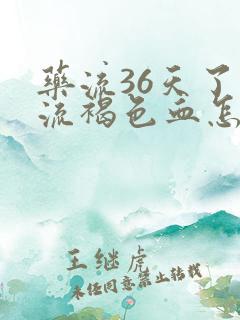 药流36天了
流褐色血怎
王继虎
未经同意禁止转载